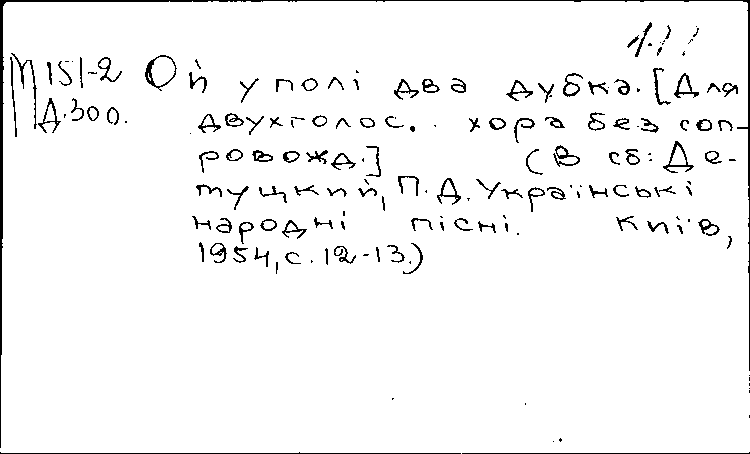 М151-2 Ой у полі два дубка. [Для
Д.300. двухголос. хора без соп-
ровожд.] (В сб: Де-
муцкий, П.Д. Українські
народні пісні. Київ,
1954, с. 12-13.)